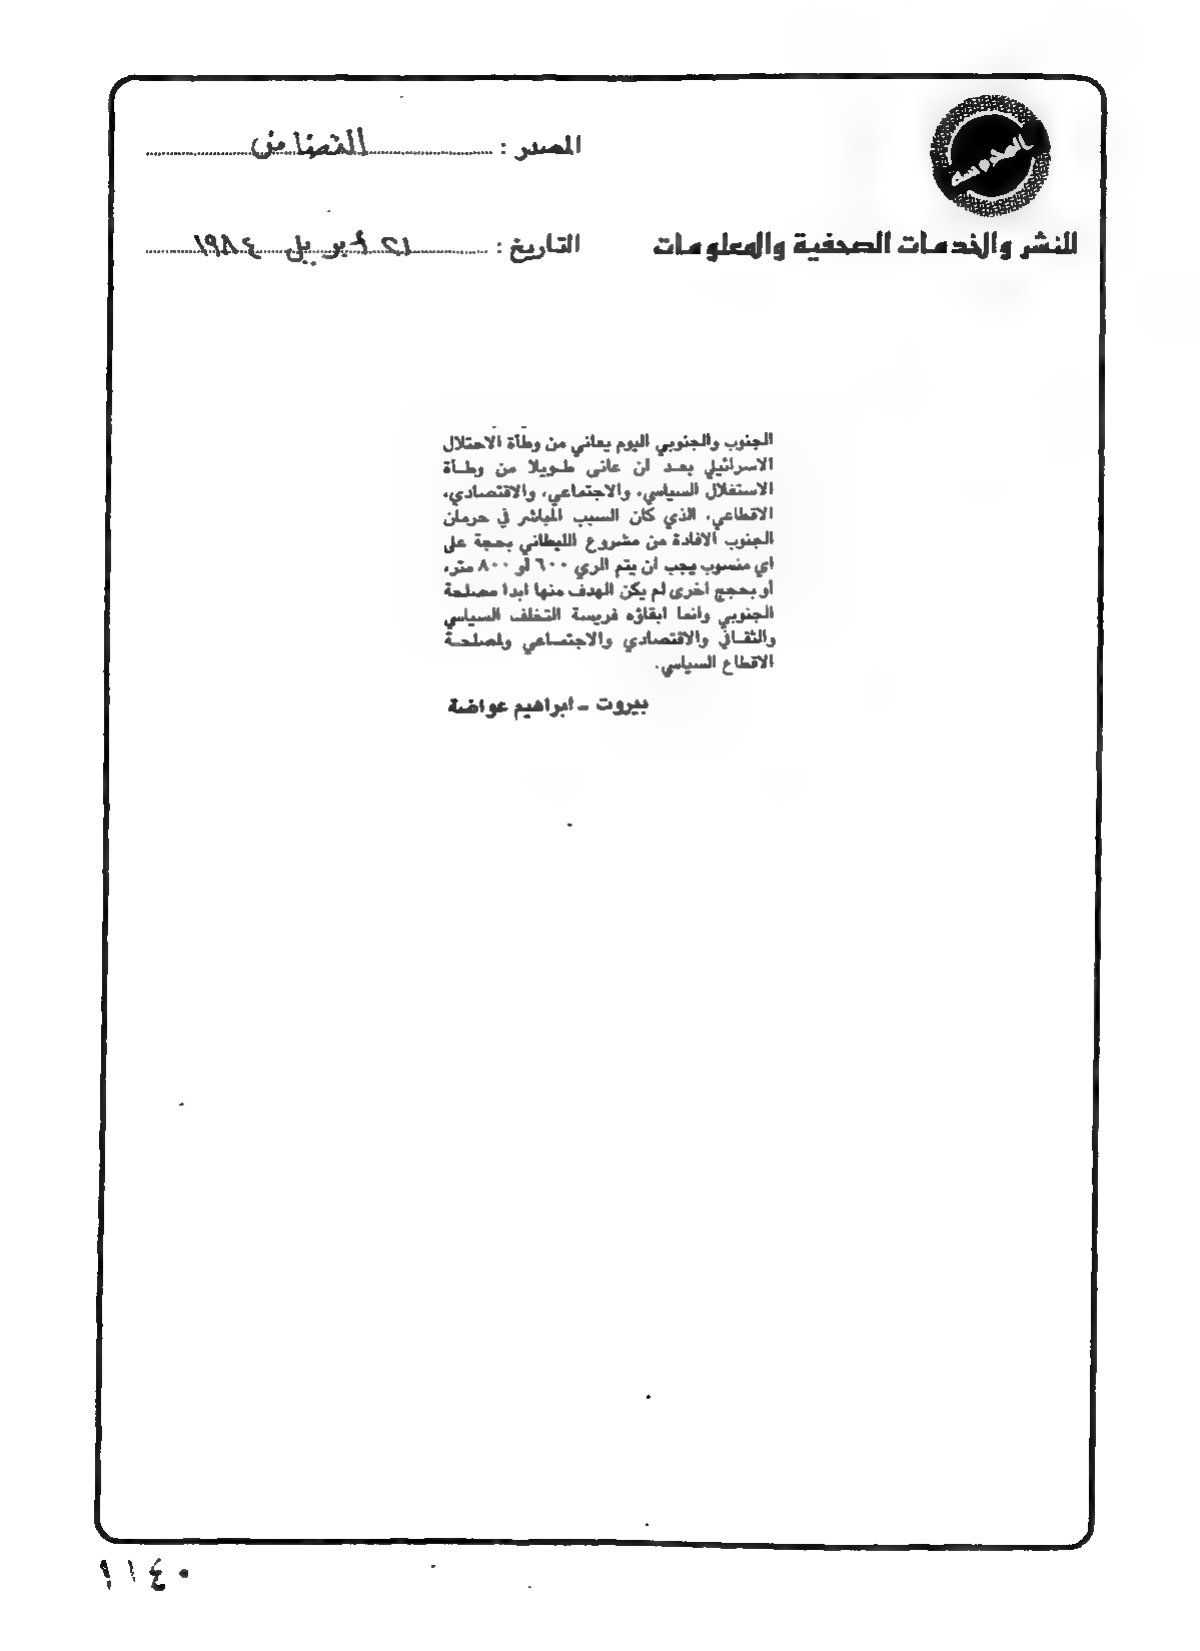 المصدر : التضامن
للنشر والخدمات الصحفية والمعلومات
التاريخ : ٢١ أبريل ١٩٨٤
الجنوب والجنوبي اليوم يعاني من وطأة الاحتلال
الاسرائيلي بعد ان عانى طويلا من وطأة
الاستغلال السياسي، والاجتماعي، والاقتصادي،
الاقطاعي، الذي كان السبب المباشر في حرمان
الجنوب الافادة من مشروع الليطاني بحجة على
اي منسوب يجب ان يتم الري ٦٠٠ او ٨٠٠ متر،
أو بحجج اخرى لم يكن الهدف منها ابدا مصلحة
الجنوبي وانما ابقاؤه فريسة التخلف السياسي
والثقافي والاقتصادي والاجتماعي ولمصلحة
الاقطاع السياسي.
بيروت - ابراهيم عواضة
١١٤٠